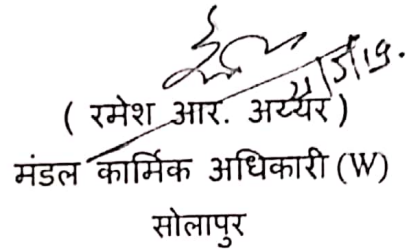 ( रमेश आर. अय्यर )
मंडल कार्मिक अधिकारी (W)
सोलापुर